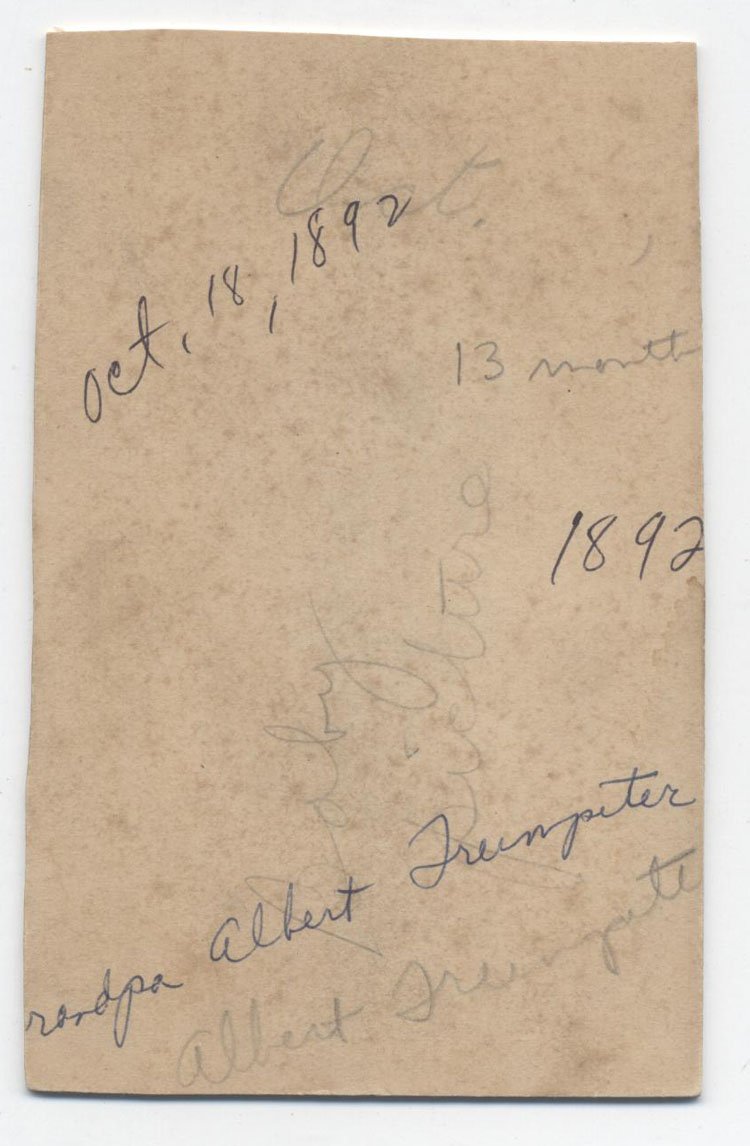 Oct.
Oct. 18, 1892
13 month
1892
Baby
randpa Albert Trumpiter
Albert Trumpite